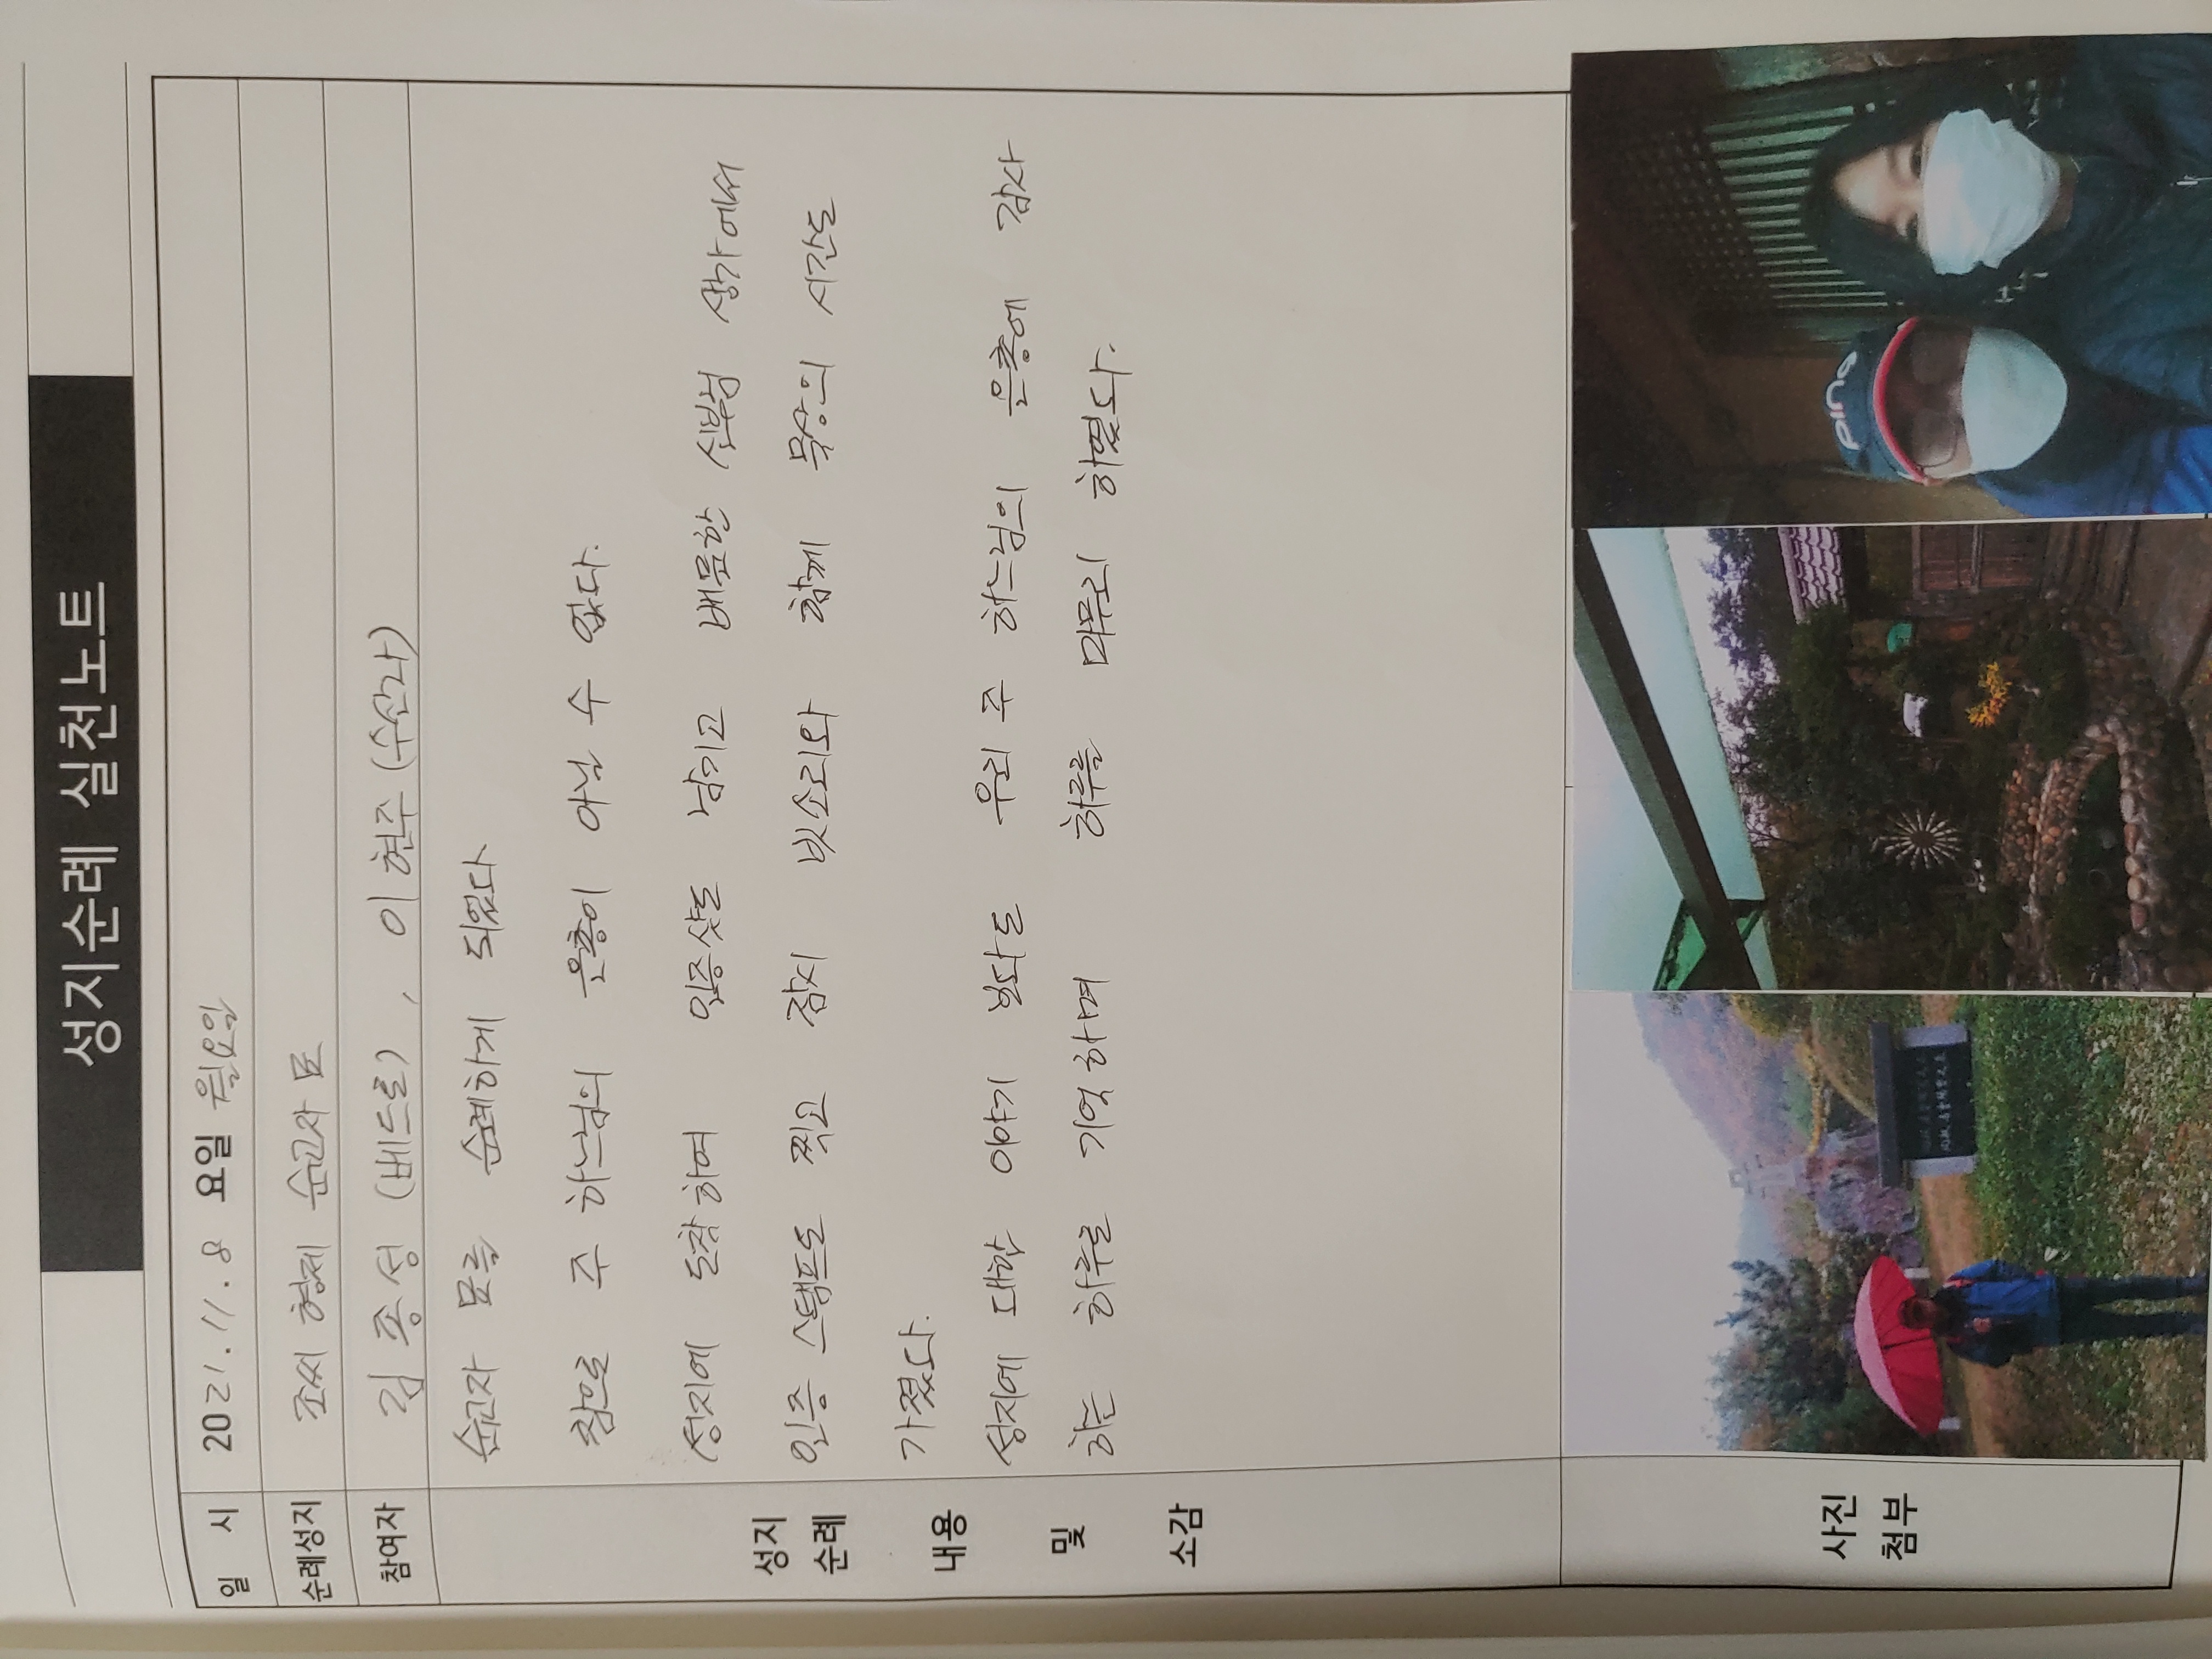 성지순례 실천노트
일 시 2021.11.8 요일 월요일
순례성지 조씨 형제 순교자 묘
참여자 김종성 (베드로), 이현주 (수산나)
성지
순례
내용
및
소감
순교자 묘를 순례하게 되었다
참으로 주 하느님의 은총이 아닐 수 없다.
성지에 도착하여 인증샷도 남기고 배문한 신부님 생가에서
인증 스탬프도 찍고 잠시 빗소리와 함께 묵상의 시간도
가졌다.
성지에 대한 이야기 보다도 우리 주 하느님의 은총에 감사
하는 하루를 기억하며 하루를 마무리 하였다.
사진
첨부
PING